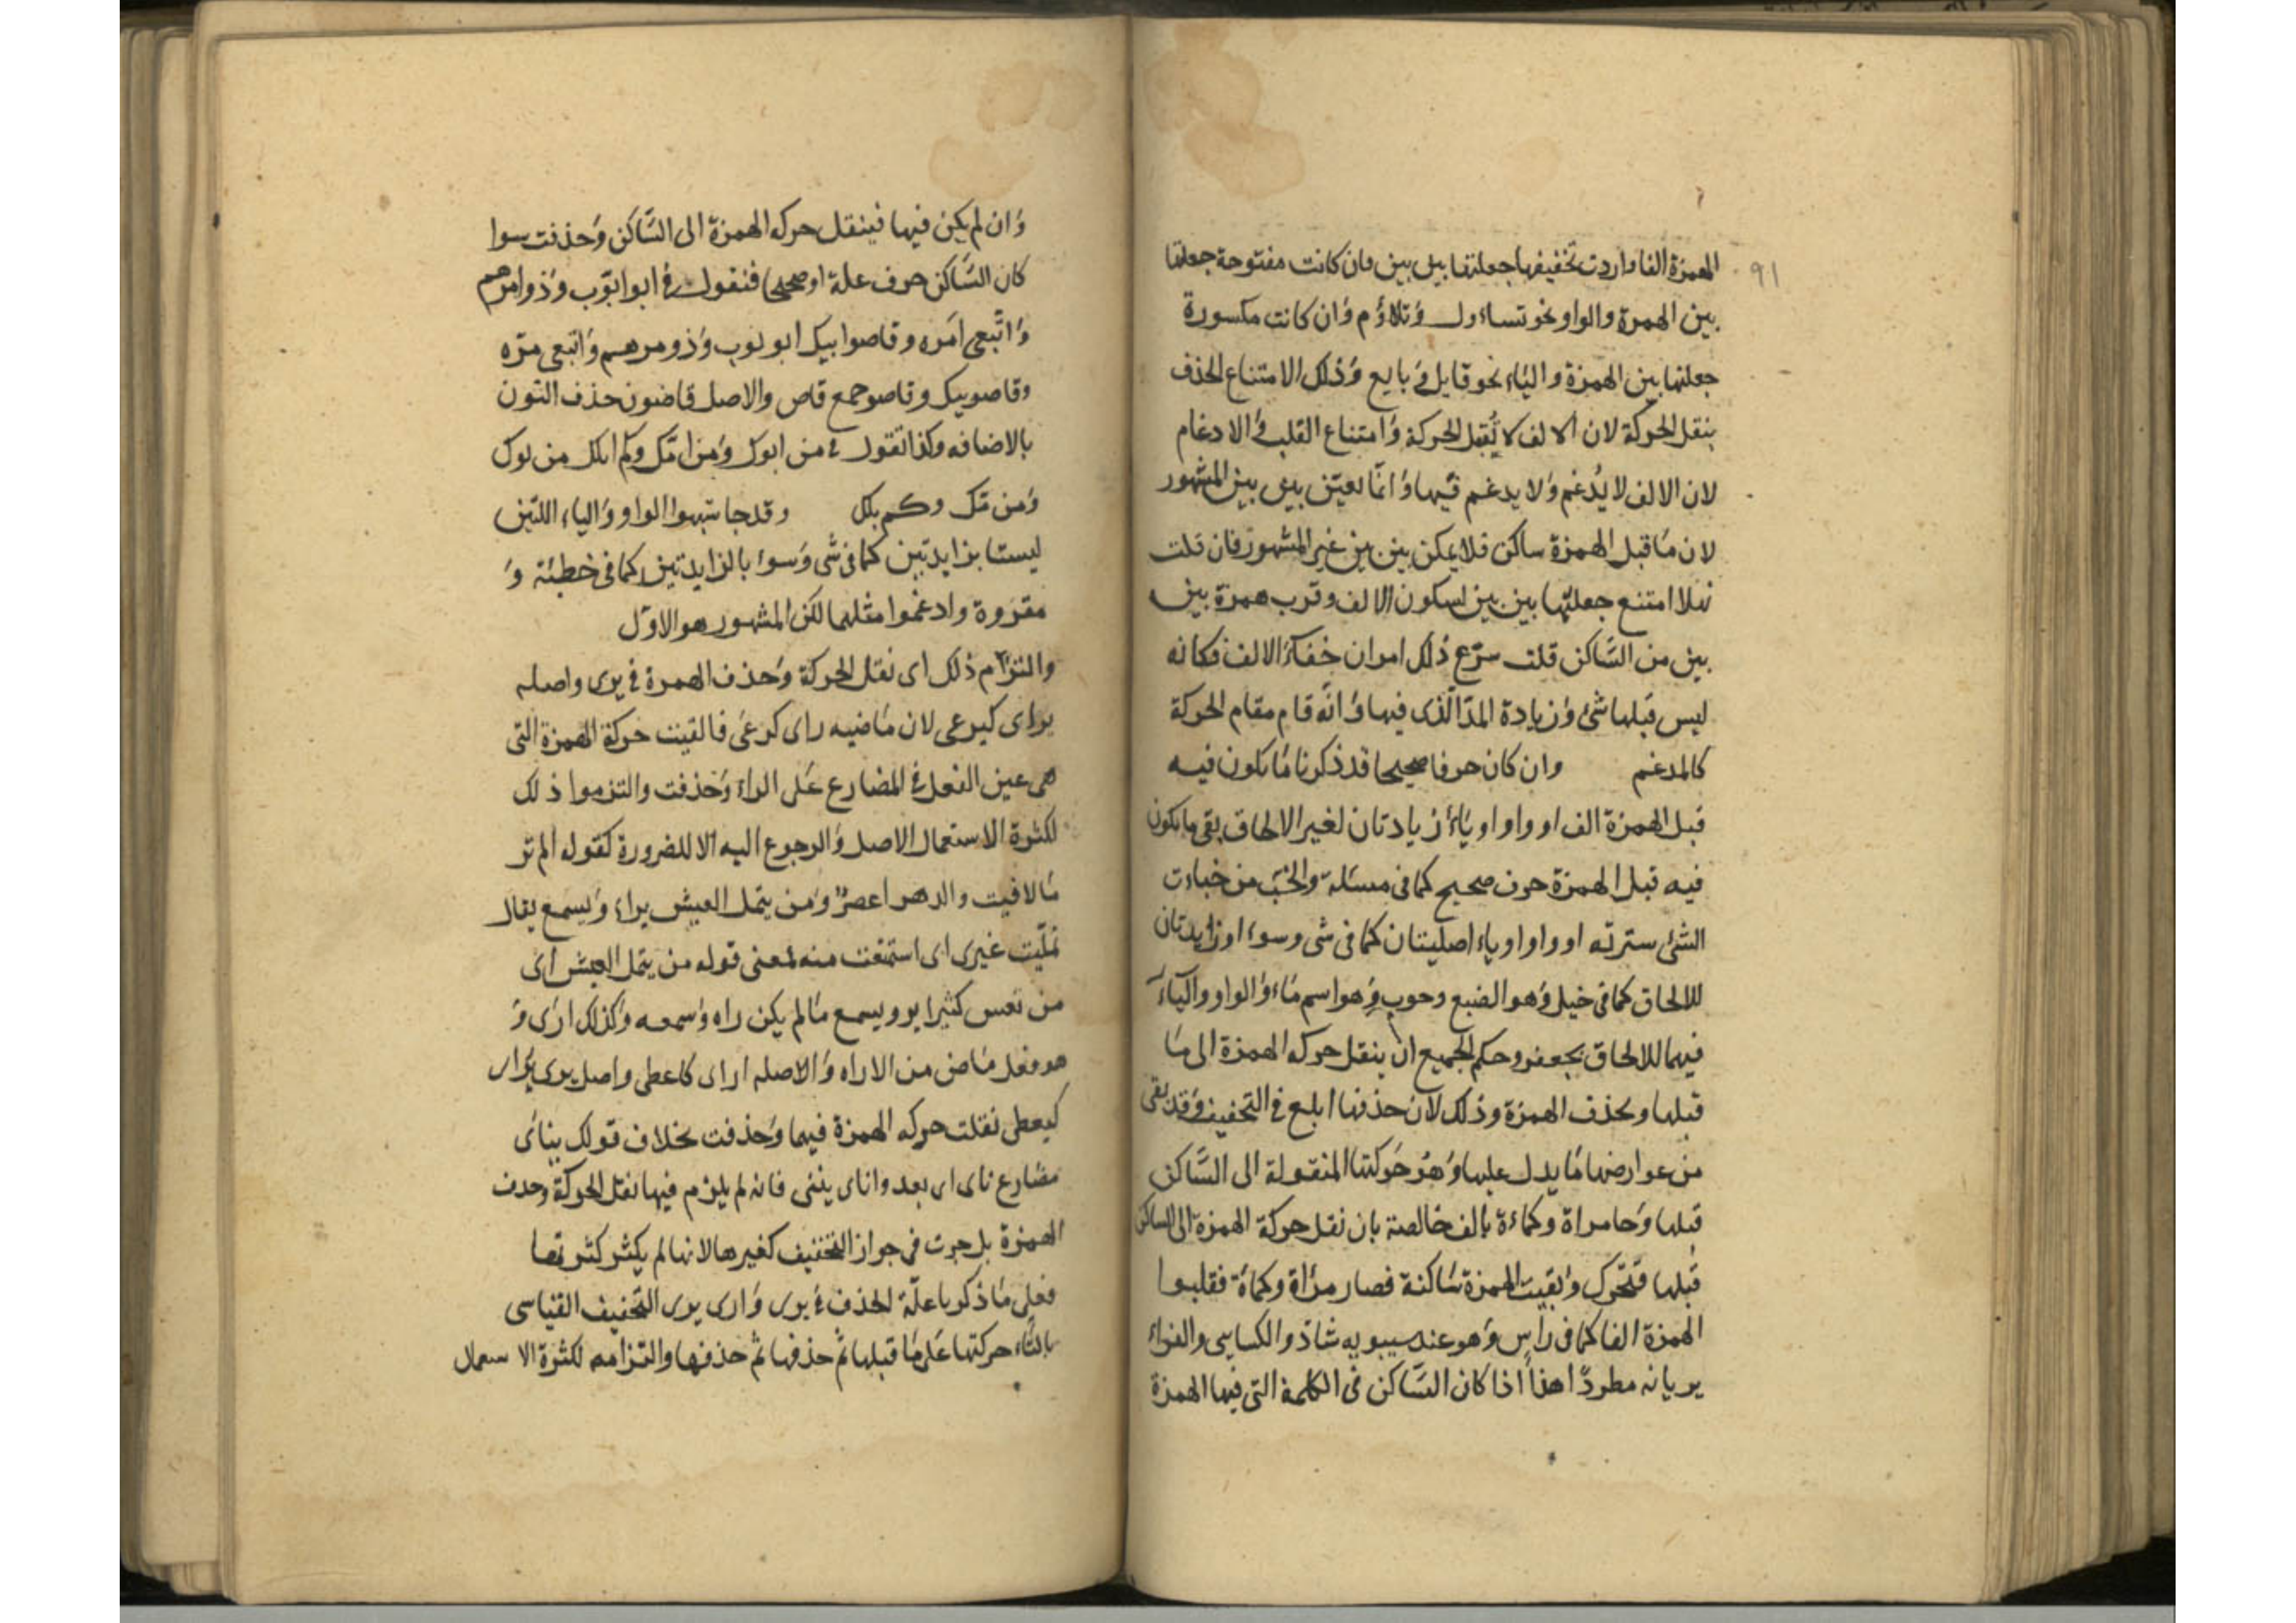 91
الهمزة الفا واردت تخفيفها جعلتها بين بين وان كانت مفتوحة جعلتها
بين الهمزة والواو نحو تساءول وتلاؤم وان كانت مكسورة
جعلتها بين الهمزة والياء نحو قايل في بايع وذلك الامتناع الحذف
بنقل الحركة لان الالف لا يقبل الحركة وامتناع القلب والادغام
لان الالف لا يدغم ولا يدغم فيها وانما تعين بين بين المشهور
لان ما قبل الهمزة ساكن فلا يمكن بين بين غير المشهور فان قلت
امتنع جعلتها بين بين لسكون الالف وقرب همزة بين
بين من الساكن قلت سوع ذلك امران خفاء الالف فكانه
ليس قبلها شئ وزيادة المد الذى فيها وانه قام مقام الحركة
كالمدغم وان كان حرفا صحيحا قد ذكرنا ما يكون فيه
قبل الهمزة الف او واو او ياء زيادتان لغير الالحاق بقى ما يكون
فيه قبل الهمزة حرف صحيح كما فى مسئلة والخب من خبات
الشئ سترته او واو او ياء اصليتان كما فى شى وسوء او زايدتان
للالحاق كما فى خيل وهو الضبع وحوب وهو اسم ماء والواو والياء
فيهما للالحاق بجعفر وحكم الجميع ان ينقل حركه الهمزة الى ما
قبلها وتحذف الهمزة وذلك لان حذفها ابلغ في التخفيف وقد بقى
من عوارضها ما يدل عليها وهو حركتها المنقولة الى الساكن
قبلها وجا مراة وكماءة بالف خالصة بان نقل حركة الهمزة الى الساكن
قبلها فتحرك وبقيت الهمزة ساكنة فصار مرأة وكمأة فقلبوا
الهمزة الفا كما فى رأس وهو عند سيبويه شاذ والكسايى والفراء
يريانه مطردا هذا اذا كان الساكن فى الكلمة التى فيها الهمزة
وان لم يكن فيها فينقل حركه الهمزة الى الساكن وحذفت سوا
كان الساكن حرف علة او صحيحا فتقول في ابو ايوب وذو امرهم
واتبعى امره وقاصوا بيك ابو يوب وذو مرهم واتبعى مره
وقاصوبيك وقاصو جمع قاص والاصل قاضون حذف النون
بالاضافه وكذا تقول في من ابوك ومن امك وكم ابلك من بوك
ومن مك وكم بلك وقد جا شبهوا الواو والياء اللتين
ليستا بزايدتين كما فى شى وسوا بالزايدتين كما فى خطيئة و
مقروة وادغموا مثلهما لكن المشهور هو الاول
والتزام ذلك اى نقل الحركة وحذف الهمزة في يرى واصله
يراى كيرعى لان ماضيه راى كرعى فالقيت حركة الهمزة التى
هى عين الفعل في المضارع على الراء وحذفت والتزموا ذلك
لكثرة الاستعمال الاصل والرجوع اليه الا للضرورة كقوله الم تر
ما لاقيت والدهر اعصر ومن يتمل العيش يراء ويسمع يقال
تمليت غيرى اى استمتعت منه لمعنى قوله من يتمل العيش اى
من تعس كثيرا يرو ويسمع ما لم يكن راه وسمعه وكذلك ارى و
هو فعل ماض من الاراه والاصله اراى كاعطى واصل يرى يراى
كيعطى نقلت حركه الهمزة فيهما وحذفت بخلاف قولك يناى
مضارع ناى اى بعد واناى ينئى فانه لم يلزم فيها نقل الحركة وحذف
الهمزة بل جرت فى جواز التخفيف كغيرها لانها لم يكثر كثرتها
فعلى ما ذكرنا علة الحذف في يرى وارى يرى التخفيف القياسى
بالقاء حركتها على ما قبلها ثم حذفها ثم حذفها والتزامه لكثرة الاستعمال